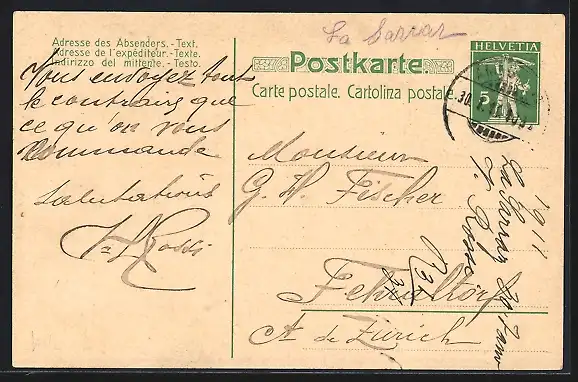 La Sarraz
Adresse des Absenders.-Text.
Adresse de l'expéditeur.-Texte.
Indirizzo del mittente.-Testo.
Postkarte.
Carte postale. Cartolina postale.
HELVETIA
5
30.
Vous envoyez tout
le contraire que
ce qu'on vous
commande
salutations
Rossi
Monsieur
G. H. Fischer
Fehraltorf
Ct de Zürich
La Sarraz 30 Janv
1911